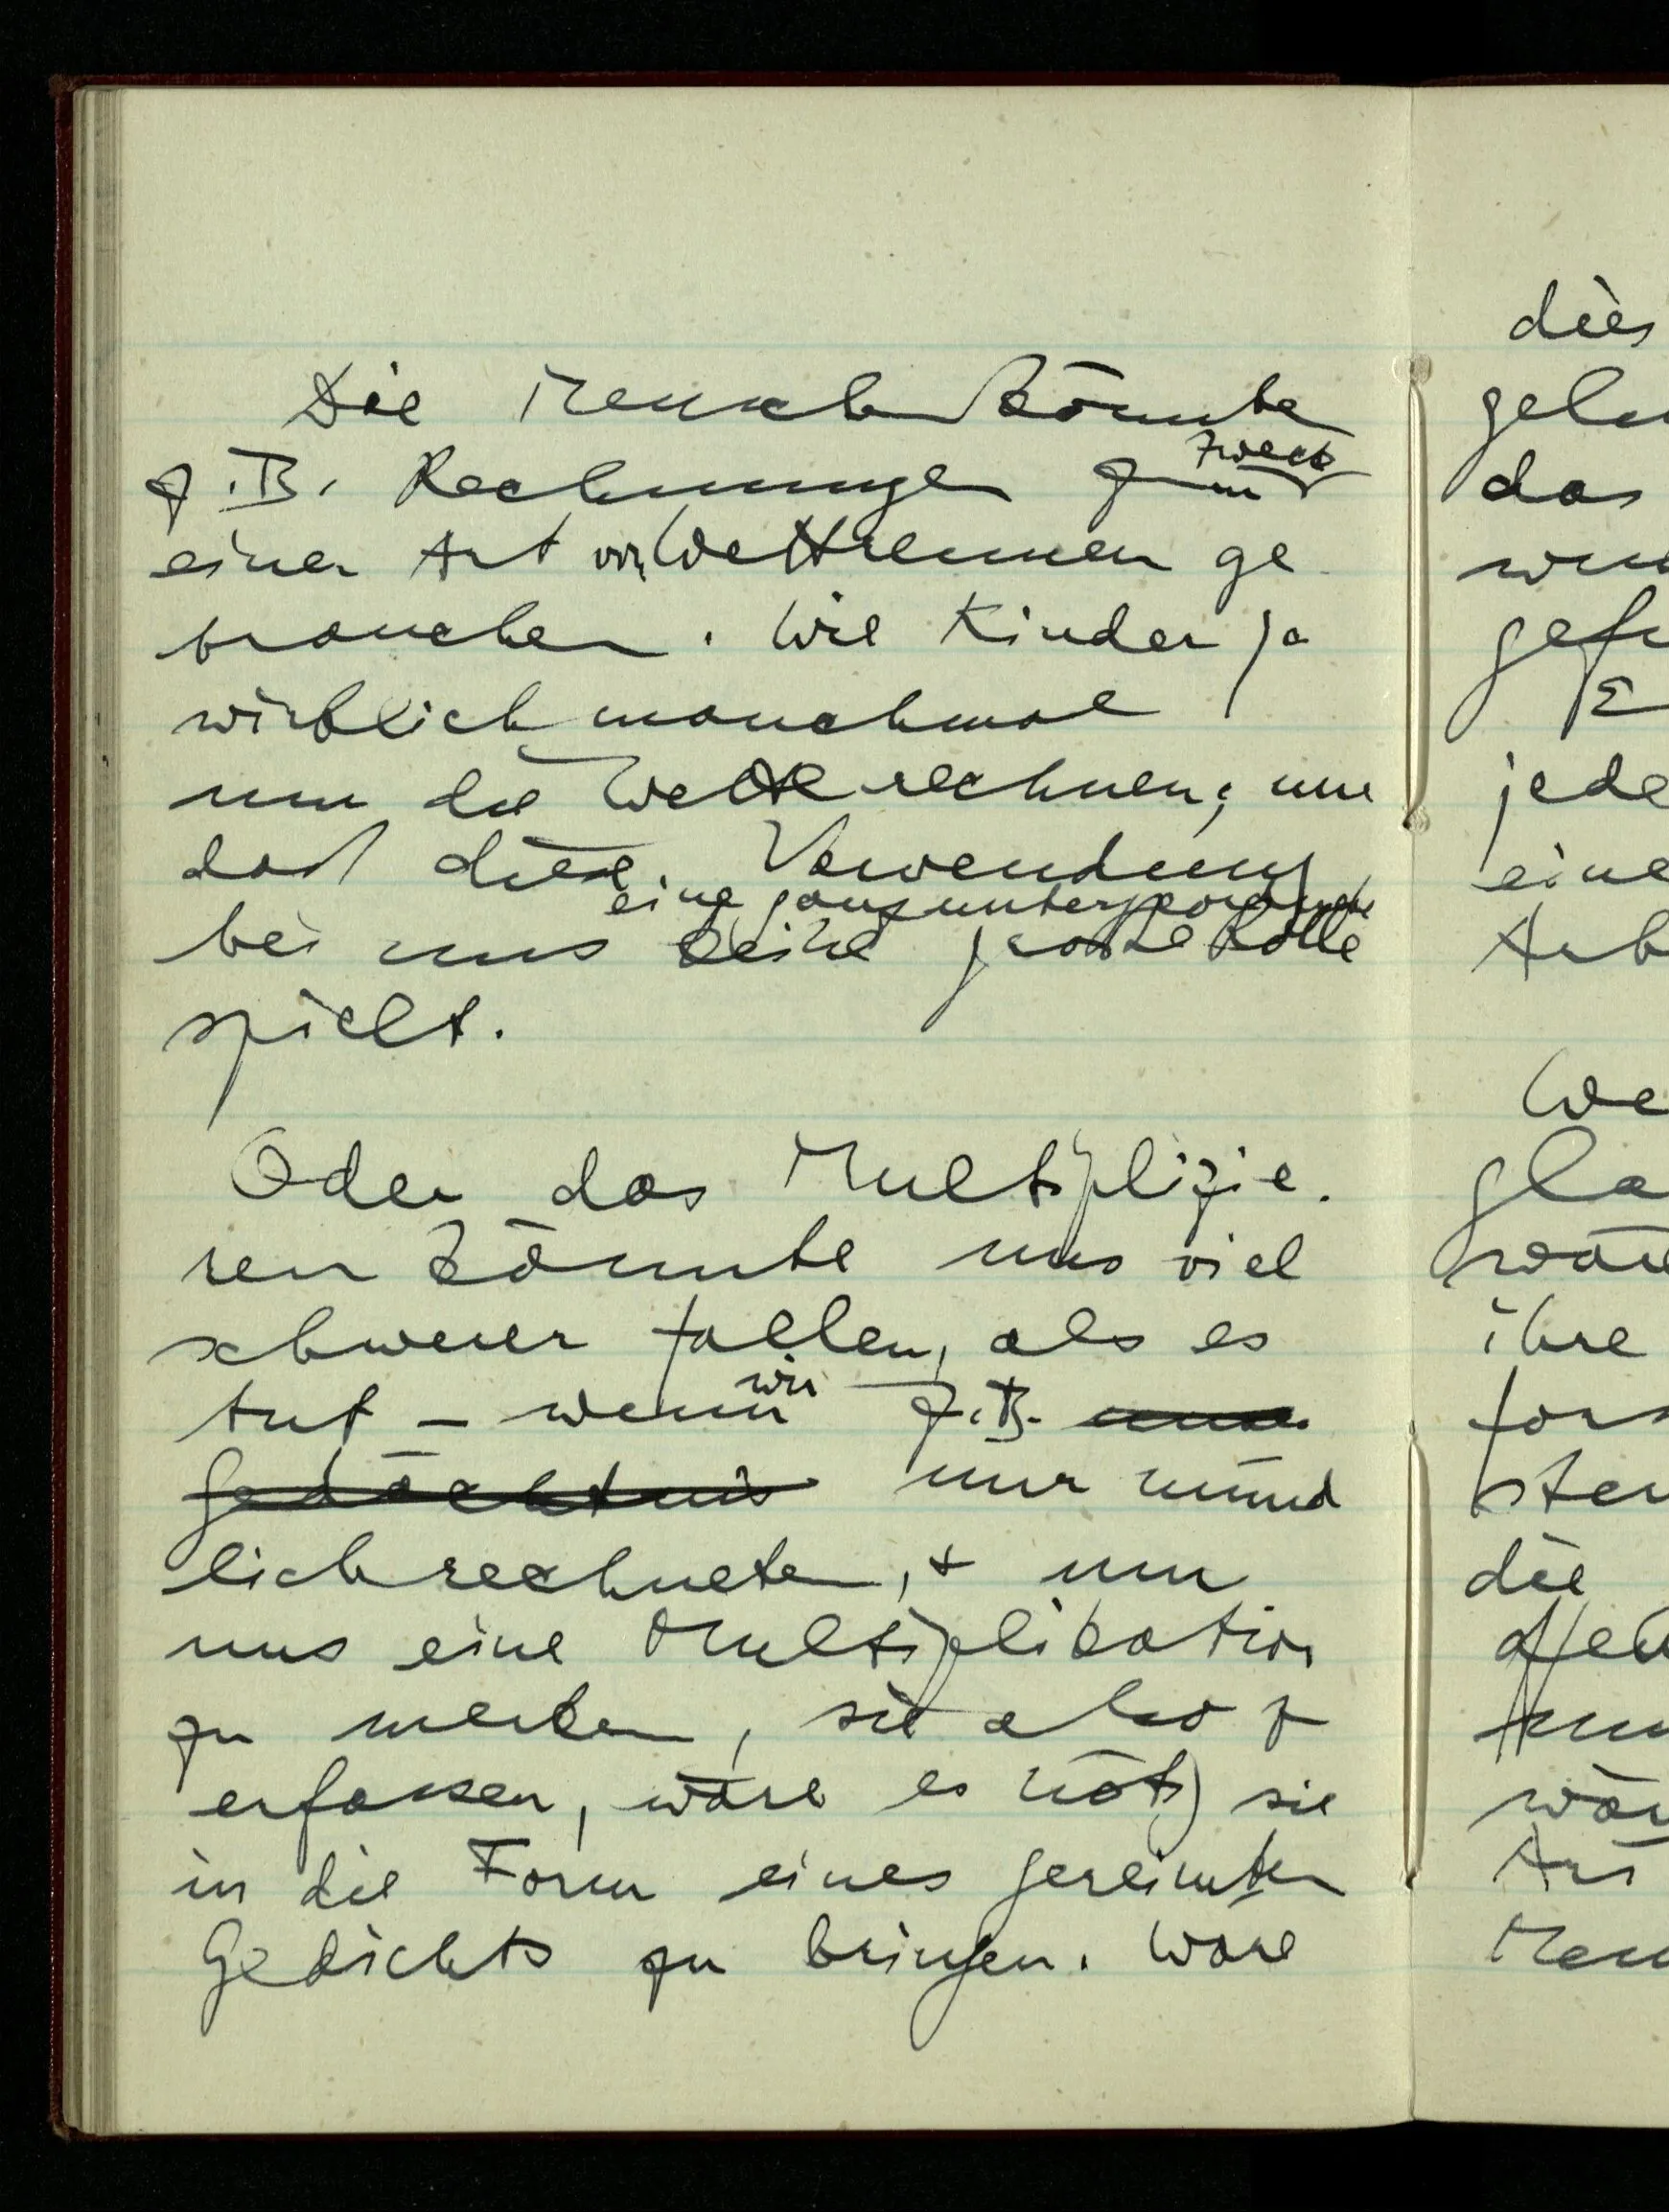 Die Menschen könnten
z.B. Rechnungen zum Zweck
einer Art von Wettrennen ge-
brauchen. Wie Kinder ja
wirklich manchmal
um die Wette rechnen; nur
daß diese Verwendung
eine ganz untergeordnete
bei uns keine große Rolle
spielt.
Oder das Multiplizie-
ren könnte uns viel
schwerer fallen, als es
tut – wenn wir z.B.
Gedächtnis nur münd
lich rechneten, & um
uns eine Multiplikation
zu merken, sie also zu
erfassen, wäre es nötig sie
in die Form eines gereimten
Gedichts zu bringen. Wäre
dies
das
jede
eine
ihre
die